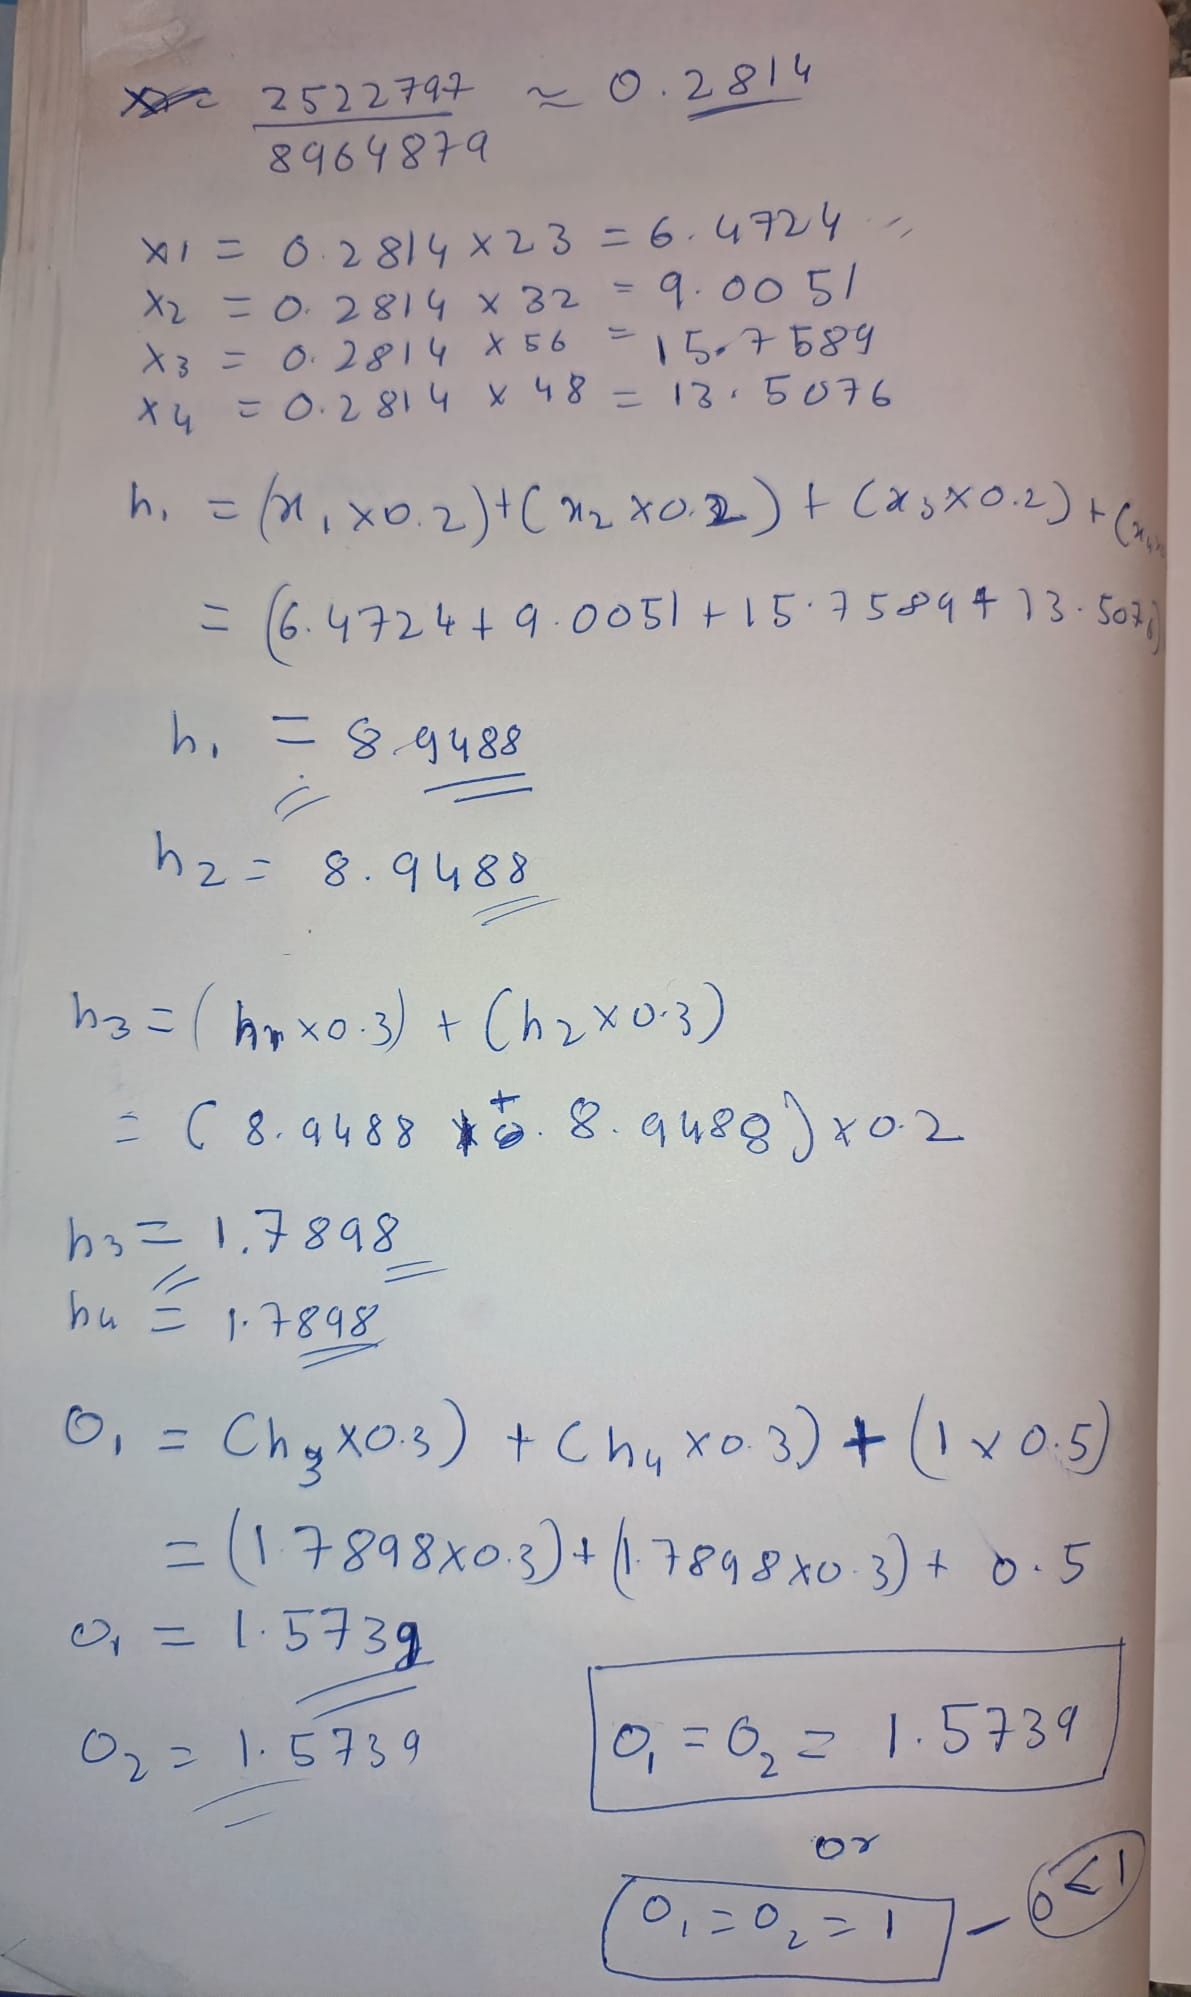 2522797 ≈ 0.2814
8964879
x1 = 0.2814 x 23 = 6.4724
x2 = 0.2814 x 32 = 9.0051
x3 = 0.2814 x 56 = 15.7589
x4 = 0.2814 x 48 = 13.5076
h1 = (x1 x0.2)+(x2 x0.2) + (x3x0.2) + (x4
= (6.4724+9.0051+15.7589+13.507
h1 = 8.9488
h2 = 8.9488
h3 = (h1 x0.3) + (h2x0.3)
= (8.9488 + 8.9488) x0.2
h3 = 1.7898
h4 = 1.7898
O1 = (h3 x0.3) + (h4 x0.3) + (1 x 0.5)
= (1.7898x0.3)+(1.7898x0.3) + 0.5
O1 = 1.5739
O2 = 1.5739
O1 = O2 = 1.5739
or
O1=O2=1 - 0<1